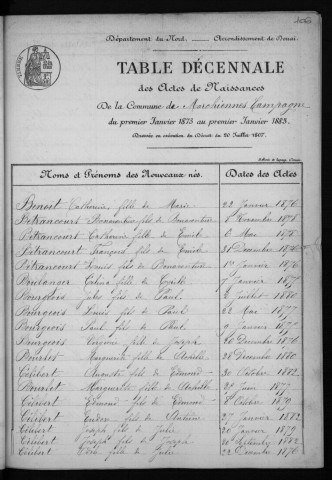 Département du Nord. Arrondissement de Douai.
TABLE DÉCENNALE
des Actes de Naissances
De la Commune de Marchiennes Campagne
du premier Janvier 1873 au premier Janvier 1883.
Dressée en exécution du Décret du 20 Juillet 1807.
Noms et Prénoms des Nouveaux-nés. Dates des Actes
Benoit Catherine, fille de Marie 22 Janvier 1876
Bétrancourt Bonaventure fils de Bonaventure 6 Novembre 1878
Bétrancourt Catherine fille de Emile 6 Mai 1878
Bétrancourt François fils de Emile 31 Décembre 1876
Bétrancourt Louis fils de Bonaventure 1er Janvier 1876
Boulanger fille de 7 Janvier
Bourgeois Jules fils de Paul 2 Juillet 1880
Bourgeois Louis fils de Paul 22 Mai 1877
Bourgeois Paul fils de Paul 9 Janvier
Bourgeois Virginie fille de Joseph 20 Décembre 1876
Bourlet Marguerite fille de 26 Décembre 1880
Célibert Auguste fils de Edmond 30 Octobre 1882
Bourlet Marguerite fille de 2 Juin 1877
Célibert Edmond fils de Edmond 8 Octobre 1879
Célibert fils de 27 Janvier 1882
Célibert Joseph fils de Julie 20 Janvier 1879
Célibert Joseph fils de Joseph 20 Septembre 1882
Célibert fille de Julie 22 Décembre 1876